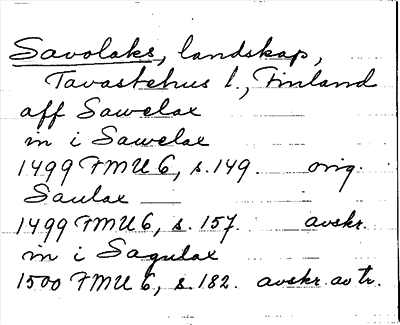 Savolaks, landskap,
Tavastehus l., Finland
aff Sawelax
in i Sawelax
1499 FMU 6, s. 149. orig.
Saulax
1499 FMU 6, s. 157. avskr.
in i Sagulax
1500 FMU 6, s. 182. avskr. av tr.